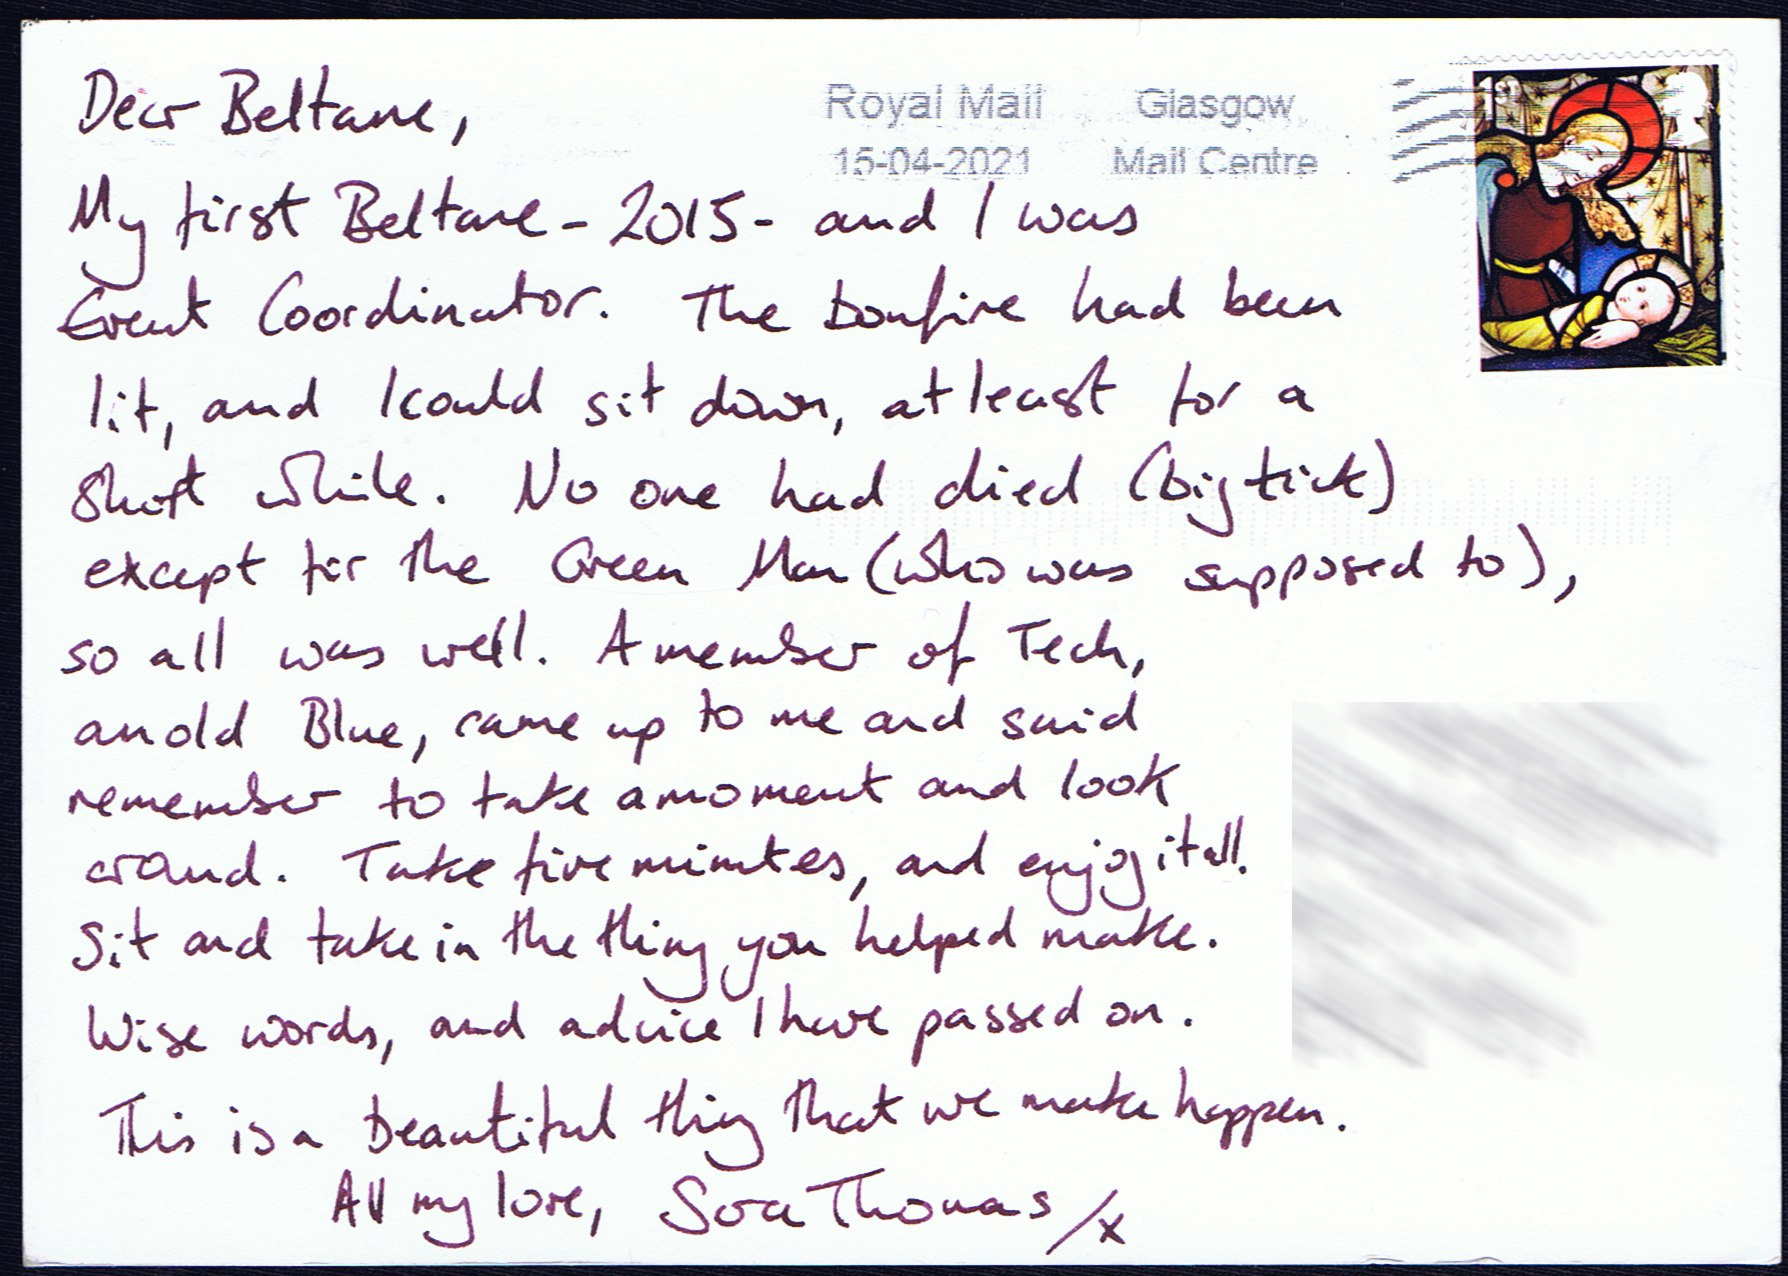 Royal Mail Glasgow
15-04-2021 Mail Centre
Dear Beltane,
My first Beltane - 2015 - and I was
Event Coordinator. The bonfire had been
lit, and I could sit down, at least for a
short while. No one had died (big tick)
except for the Green Man (who was supposed to),
so all was well. A member of Tech,
an old Blue, came up to me and said
remember to take a moment and look
around. Take five minutes, and enjoy it all.
Sit and take in the thing you helped make.
Wise words, and advice I have passed on.
This is a beautiful thing that we make happen.
All my love, Sora Thomas /x